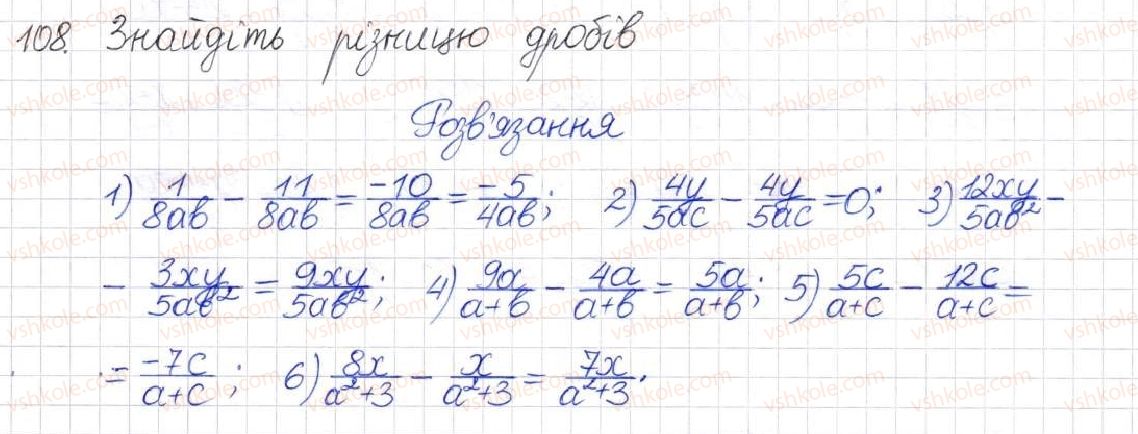 108. Знайдіть різницю дробів
Розв'язання
1) 1/8ab - 11/8ab = -10/8ab = -5/4ab; 2) 4y/5ac - 4y/5ac = 0; 3) 12xy/5ab² -
- 3xy/5ab² = 9xy/5ab²; 4) 9a/a+b - 4a/a+b = 5a/a+b; 5) 5c/a+c - 12c/a+c =
= -7c/a+c; 6) 8x/a²+3 - x/a²+3 = 7x/a²+3.
vshkole.com